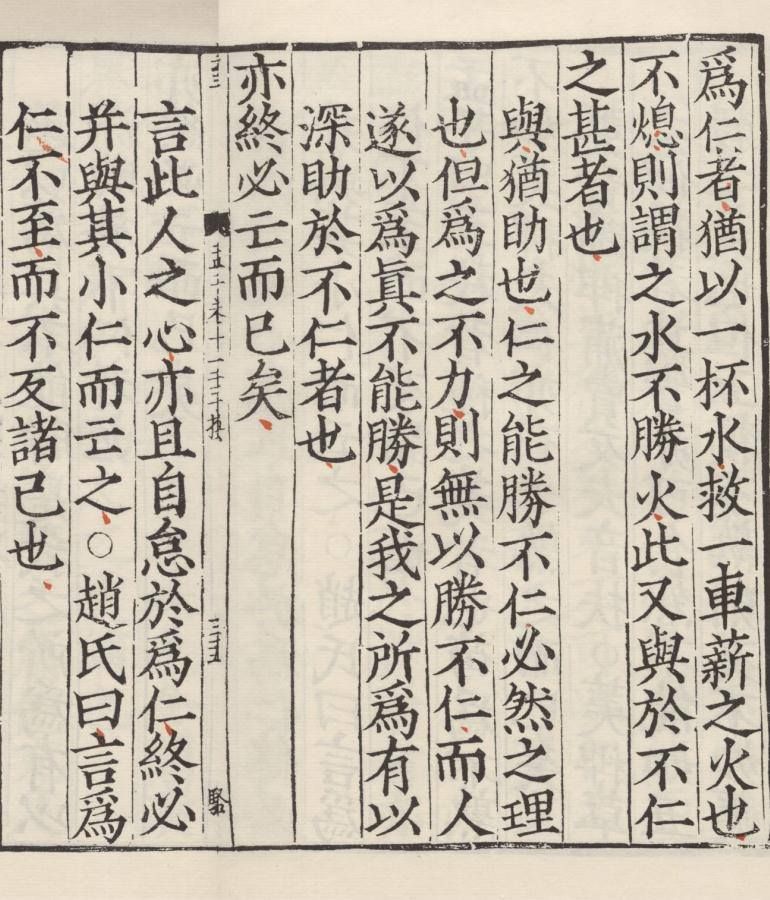 爲仁者猶以一杯水救一車薪之火也
不熄則謂之水不勝火此又與於不仁
之甚者也
與猶助也仁之能勝不仁必然之理
也但爲之不力則無以勝不仁而人
遂以爲眞不能勝是我之所爲有以
深助於不仁者也
亦終必亡而已矣
言此人之心亦且自怠於爲仁終必
幷與其小仁而亡之○趙氏曰言爲
仁不至而不反諸己也